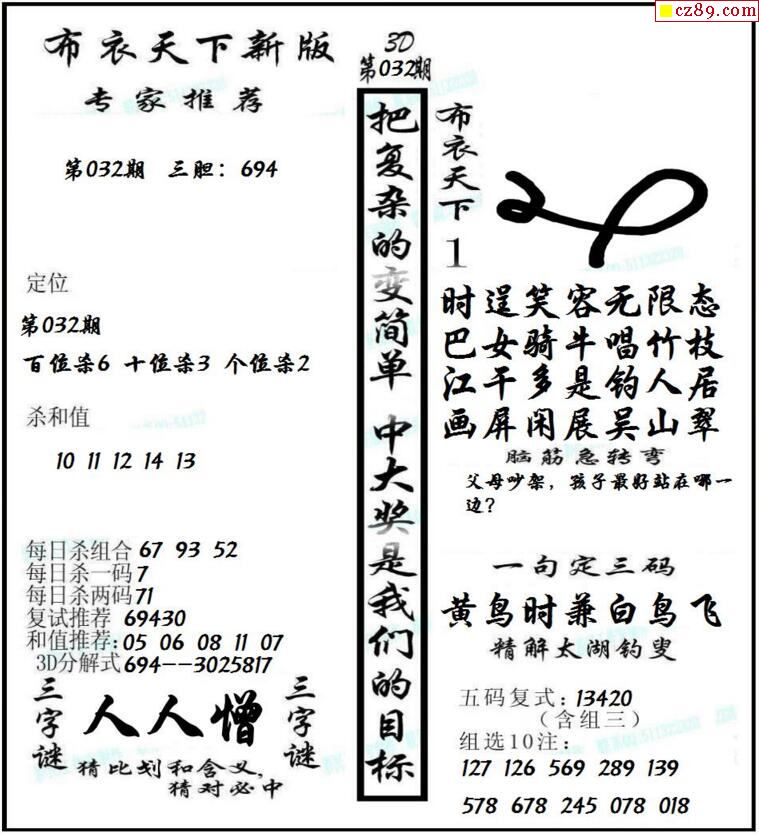 cz89.com
布衣天下新版
专家推荐
第032期 三胆：694
定位
第032期
百位杀6 十位杀3 个位杀2
杀和值
10 11 12 14 13
每日杀组合 67 93 52
每日杀一码 7
每日杀两码 71
复试推荐 69430
和值推荐：05 06 08 11 07
3D分解式 694--3025817
三字谜
人人憎
三字谜
猜比划和含义，
猜对必中
3D
第032期
把复杂的变简单 中大奖是我们的目标
布衣天下
1
时逞笑容无限态
巴女骑牛唱竹枝
江干多是钓人居
画屏闲展吴山翠
脑筋急转弯
父母吵架，孩子最好站在哪一
边？
一句定三码
黄鸟时兼白鸟飞
精解太湖钓叟
五码复式：13420
（含组三）
组选10注：
127 126 569 289 139
578 678 245 078 018